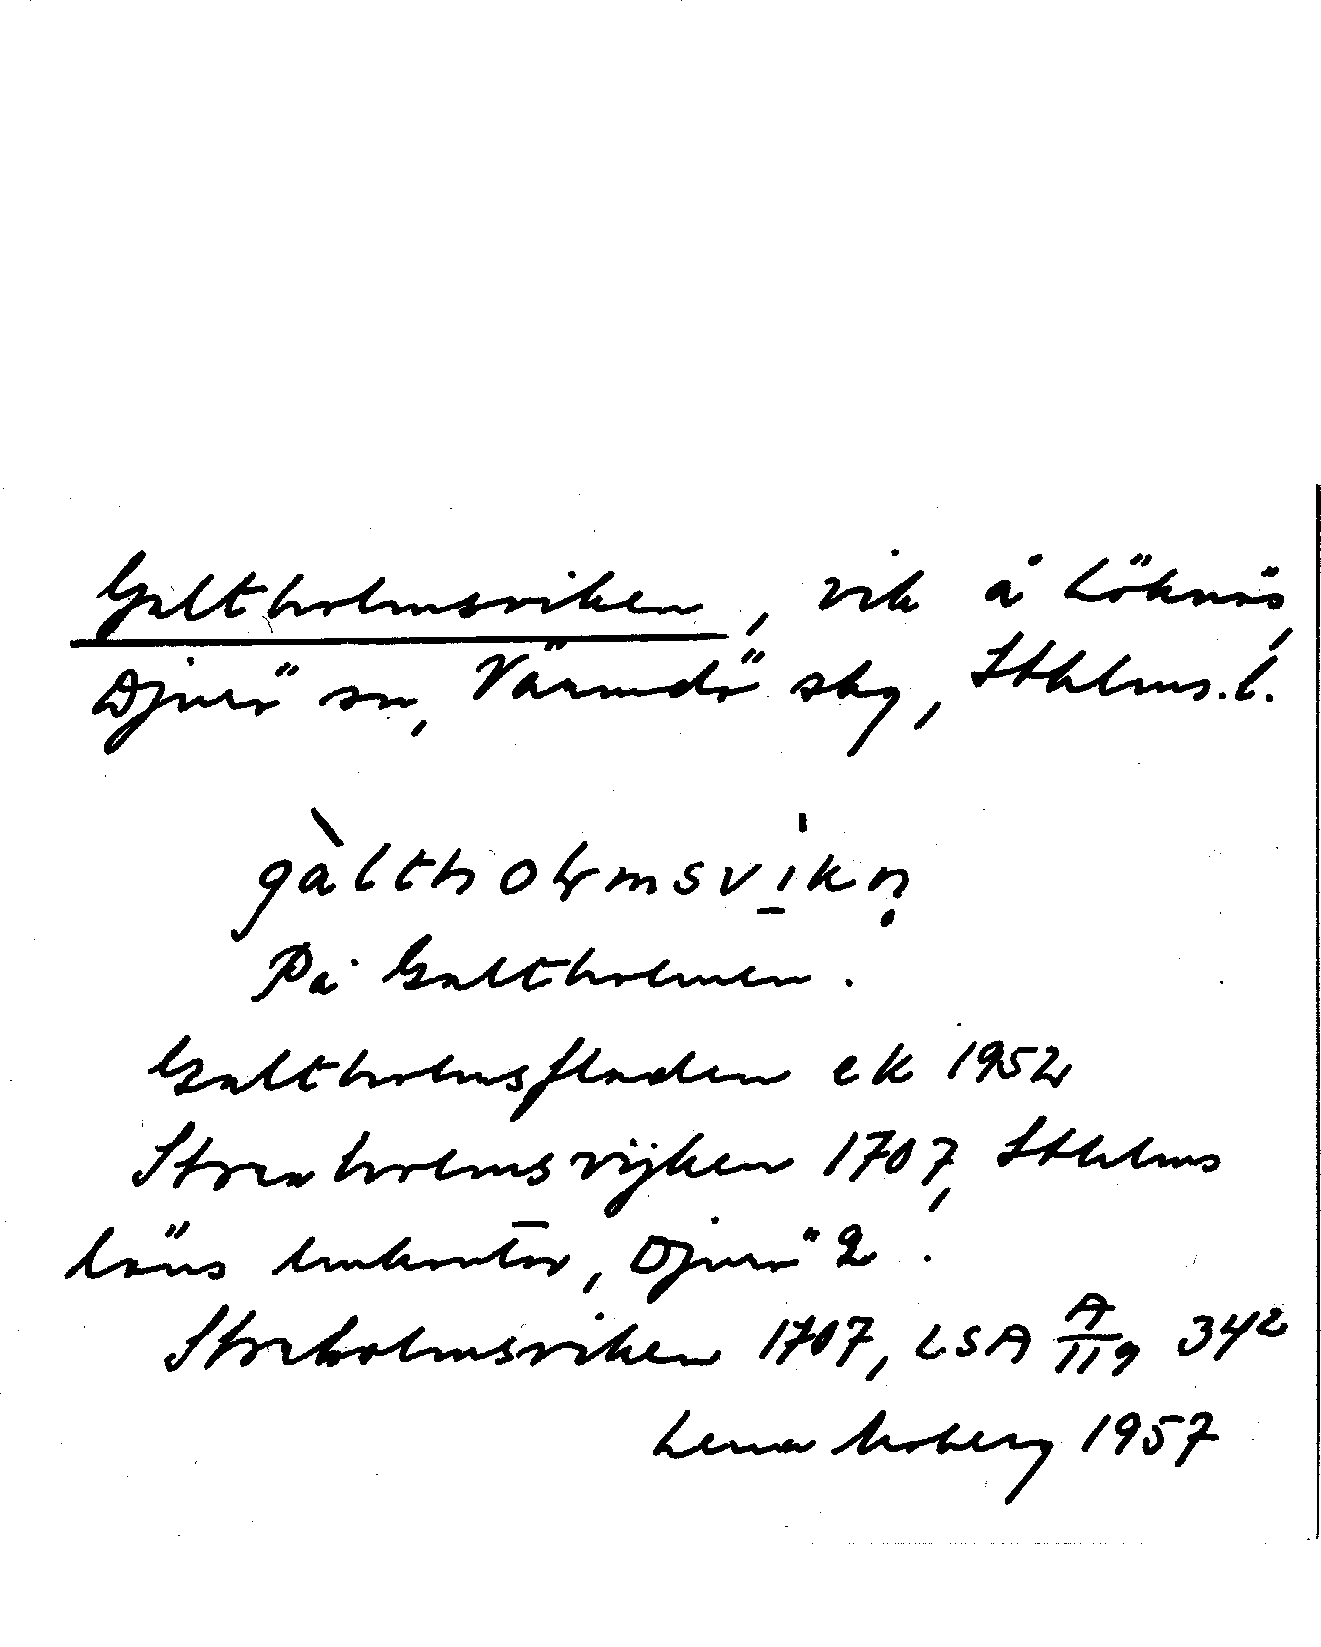 Galtholmsviken, vik å Löknäs,
Djurö sn, Värmdö skg, Sthlms. l.
gàltholmsvikn̥
På Galtholmen.
Galtholmsfladen ek 1952
Stora holmsvijken 1707, Sthlms
läns lmkontor, Djurö 2.
Storholmsviken 1707, LSA A/119 34²
Lena Moberg 1957